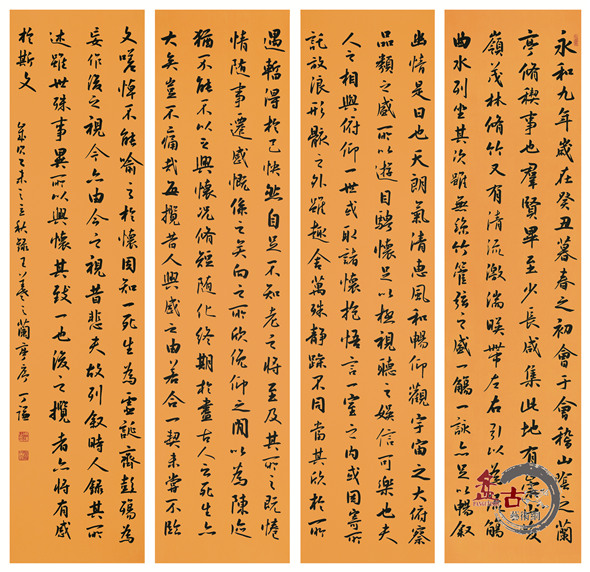 永和九年歲在癸丑暮春之初會于會稽山陰之蘭
亭脩稧事也羣賢畢至少長咸集此地有崇山峻
嶺茂林脩竹又有清流激湍暎帶左右引以為流觴
曲水列坐其次雖無絲竹管弦之盛一觴一詠亦足以暢敘
幽情是日也天朗氣清惠風和暢仰觀宇宙之大俯察
品類之盛所以遊目騁懷足以極視聽之娛信可樂也夫
人之相與俯仰一世或取諸懷抱悟言一室之內或因寄所
託放浪形骸之外雖趣舍萬殊靜躁不同當其欣於所
遇暫得於己快然自足不知老之將至及其所之既惓
情隨事遷感慨係之矣向之所欣俛仰之間以為陳迹
猶不能不以之興懷況脩短隨化終期於盡古人云死生亦
大矣豈不痛哉每攬昔人興感之由若合一契未嘗不臨
文嗟悼不能喻之於懷固知一死生為虛誕齊彭殤為
妄作後之視今亦由今之視昔悲夫故列敘時人錄其所
述雖世殊事異所以興懷其致一也後之攬者亦將有感
於斯文 歲次乙未之立秋錄王羲之蘭亭序 丁謙
盘古
藝術網